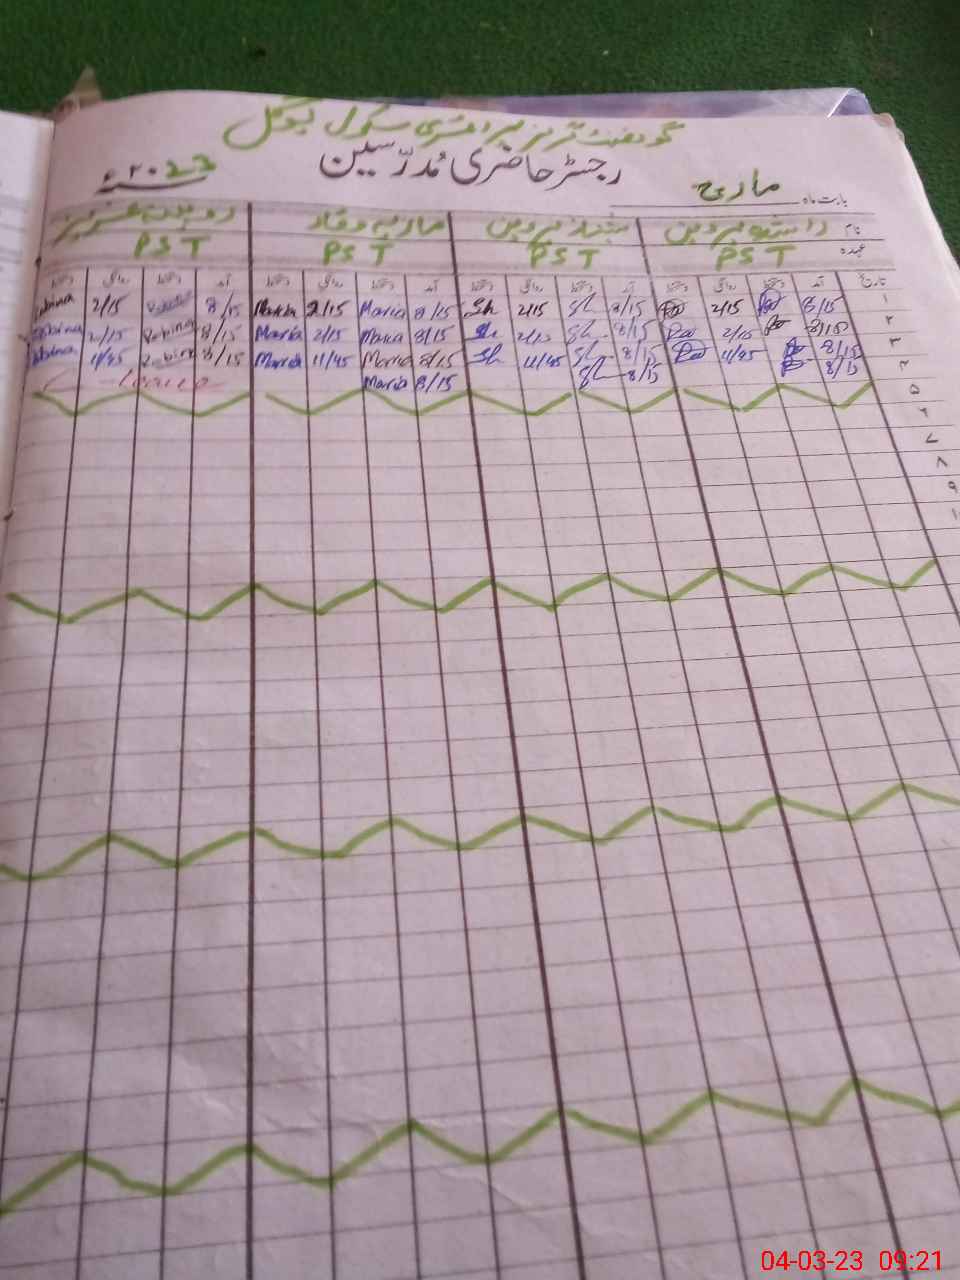 گورنمنٹ گرلز پرائمری سکول
رجسٹر حاضری مُدرّسین
بابت ماہ مارچ ۲۰23ء
نام راشدہ پروین شہناز پروین ماریہ وقار روبینہ عزیز
عہدہ PST PST PST PST
تاریخ آمد دستخط روانگی دستخط آمد دستخط روانگی دستخط آمد دستخط روانگی دستخط آمد دستخط روانگی دستخط
۱ 8/15 2/15 8/15 Sh 2/15 Sh 8/15 Maria 2/15 Maria 8/15 2/15
۲ 8/15 2/15 8/15 Sh 2/15 Sh 8/15 Maria 2/15 Maria 8/15 Robina 2/15
۳ 8/15 11/45 8/15 Sh 11/45 Sh 8/15 Maria 11/45 Maria 8/15 Robina 11/45
۴ 8/15 8/15 Sh 8/15 Maria Leave
۵
۶
۷
۸
۹
۱۰
04-03-23 09:21